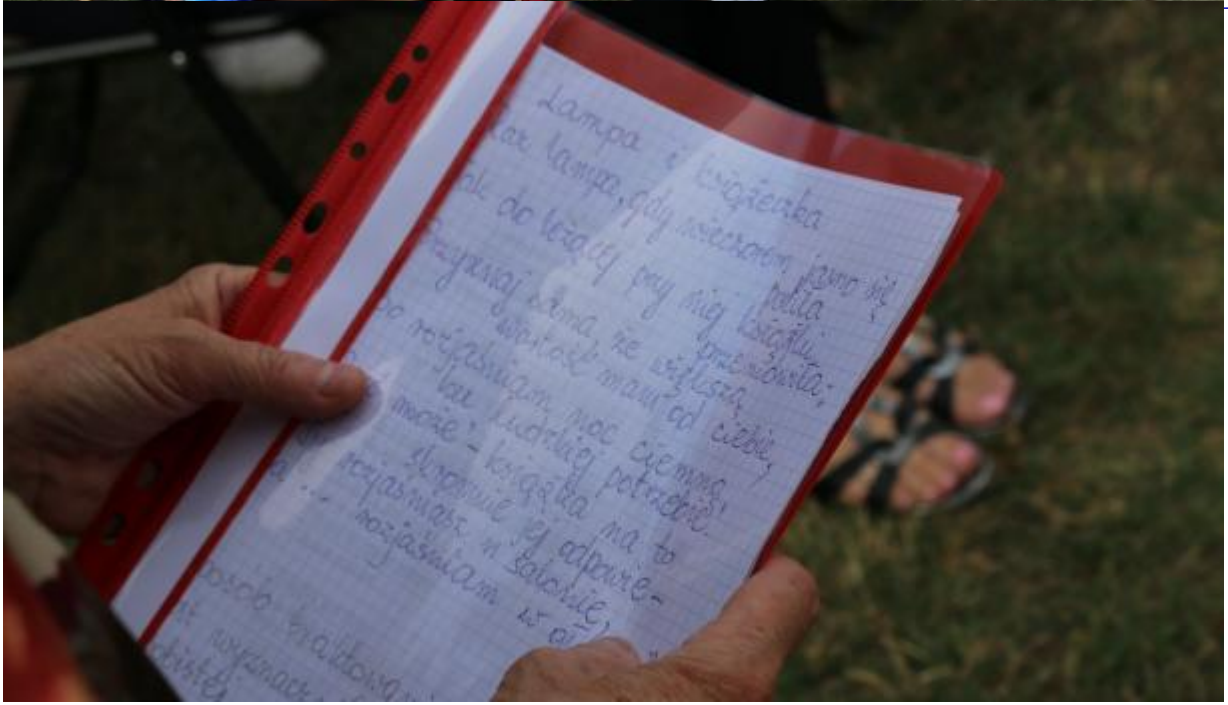 Lampa i książeczka
lampa, gdy wieczorem jasno się
paliła
do leżącej przy niej książki
przemówiła;
Przyznaj sama że większą
wartość mam od ciebie,
bo rozjaśniam noc ciemną
ku ludzkiej potrzebie.
może - książka na to
skromnie jej odpowie-
rozjaśniasz w salonie,
ja... rozjaśniam w